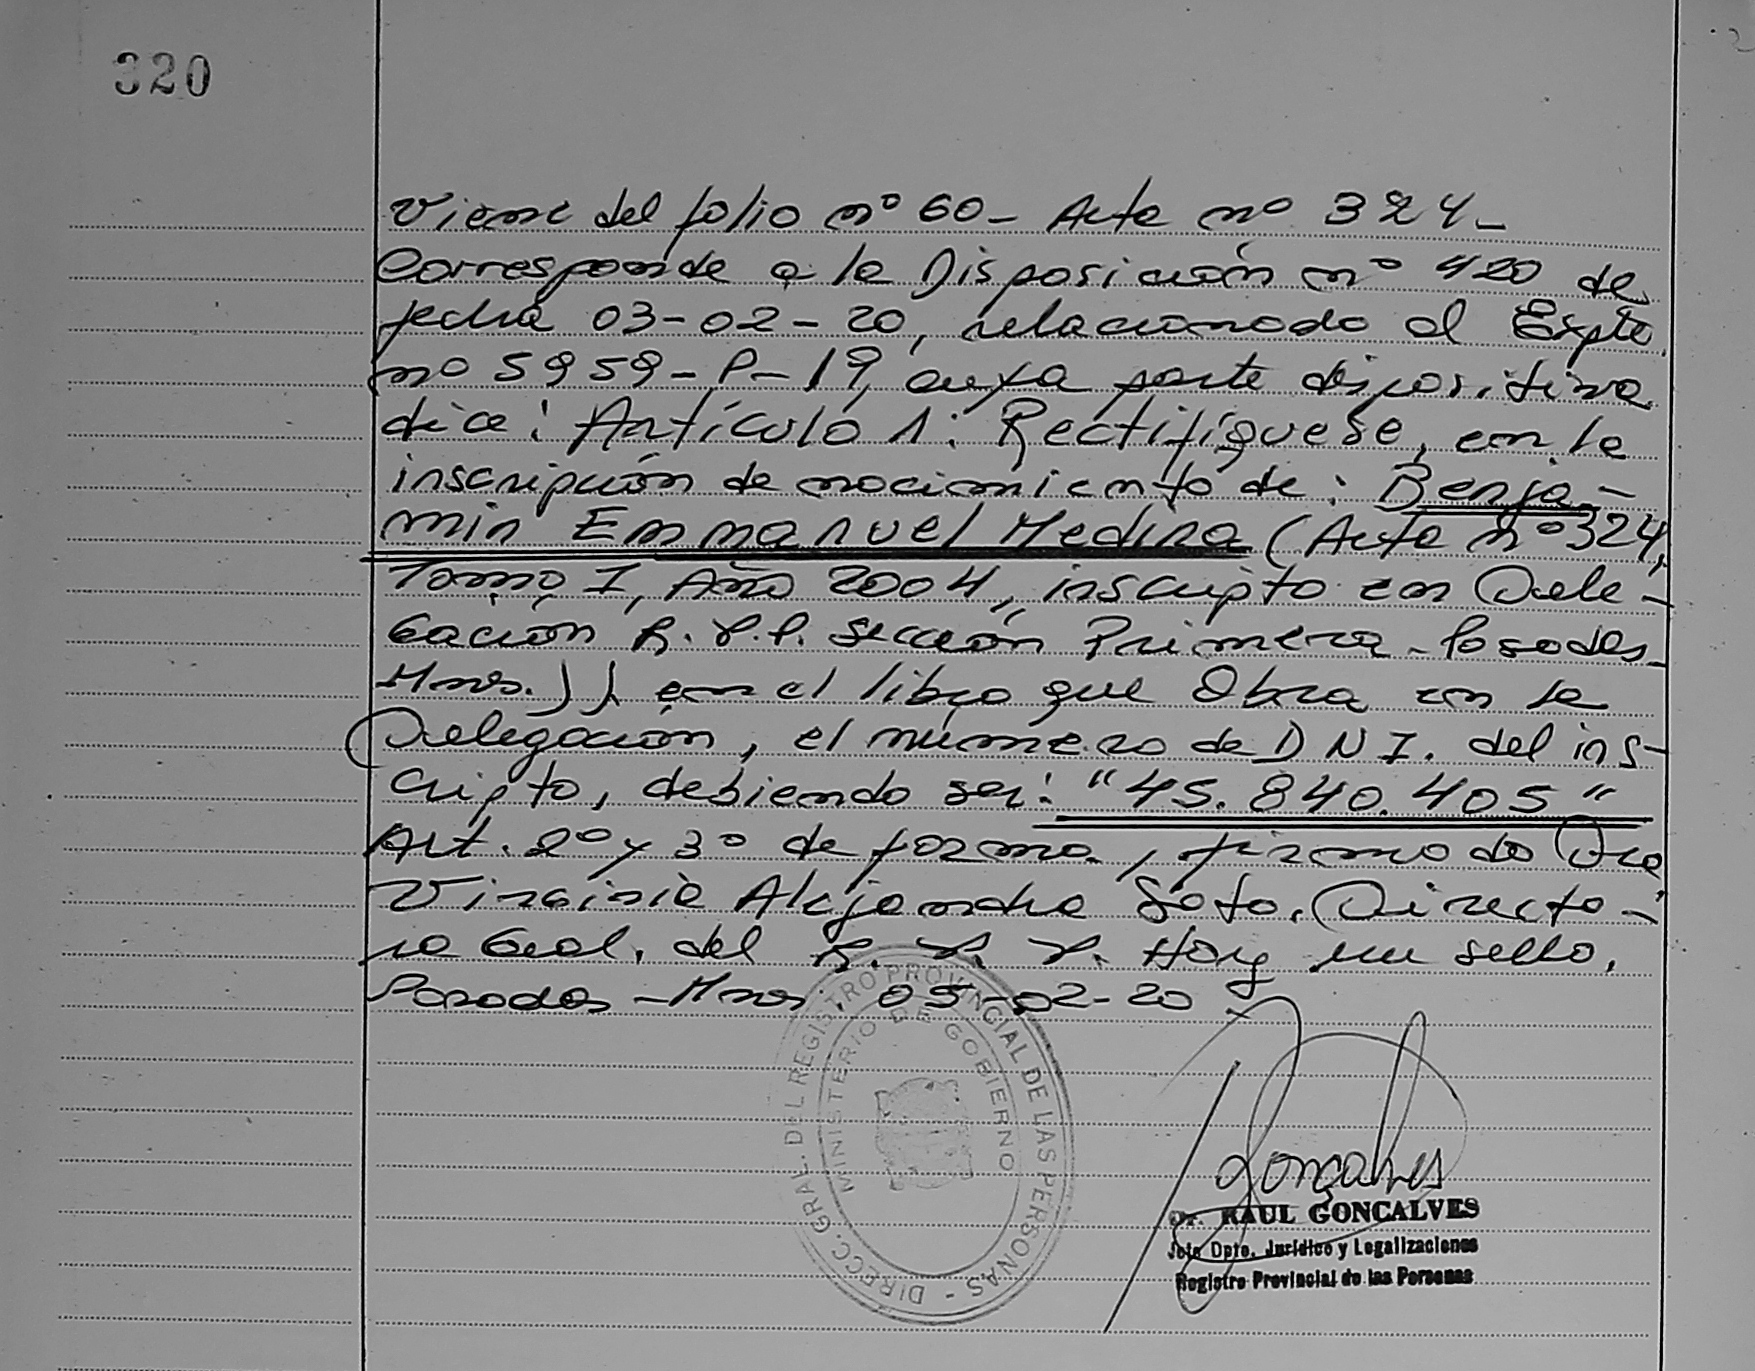 320
Viene del folio nº 60 - Acta nº 324 -
Corresponde a la Disposición nº 420 de
fecha 03-02-20, relacionado al Expte
nº 5959-P-19, cuya parte dispositiva
dice: Artículo 1: Rectifíquese, en la
inscripción de nacimiento de: Benja-
min Emmanuel Medina (Acta nº 324,
Tomo I, Año 2004, inscripto en Dele-
gación R.P.P. Sección Primera - Posadas
Mnes.)), en el libro que Obra en la
Delegación, el número de DNI. del ins-
cripto, debiendo ser: "45.840.405"
Art. 2º y 3º de forma, firmado Dra
Virginia Alejandra Soto. Directo-
ra Gral. del R. P. P. Hay un sello.
Posadas - Mnes, 05-02-20
DIRECC. GRAL. DEL REGISTRO PROVINCIAL DE LAS PERSONAS -
MINISTERIO DE GOBIERNO
Goncalves
Dr. RAUL GONCALVES
Jefe Dpto. Jurídico y Legalizaciones
Registro Provincial de las Personas